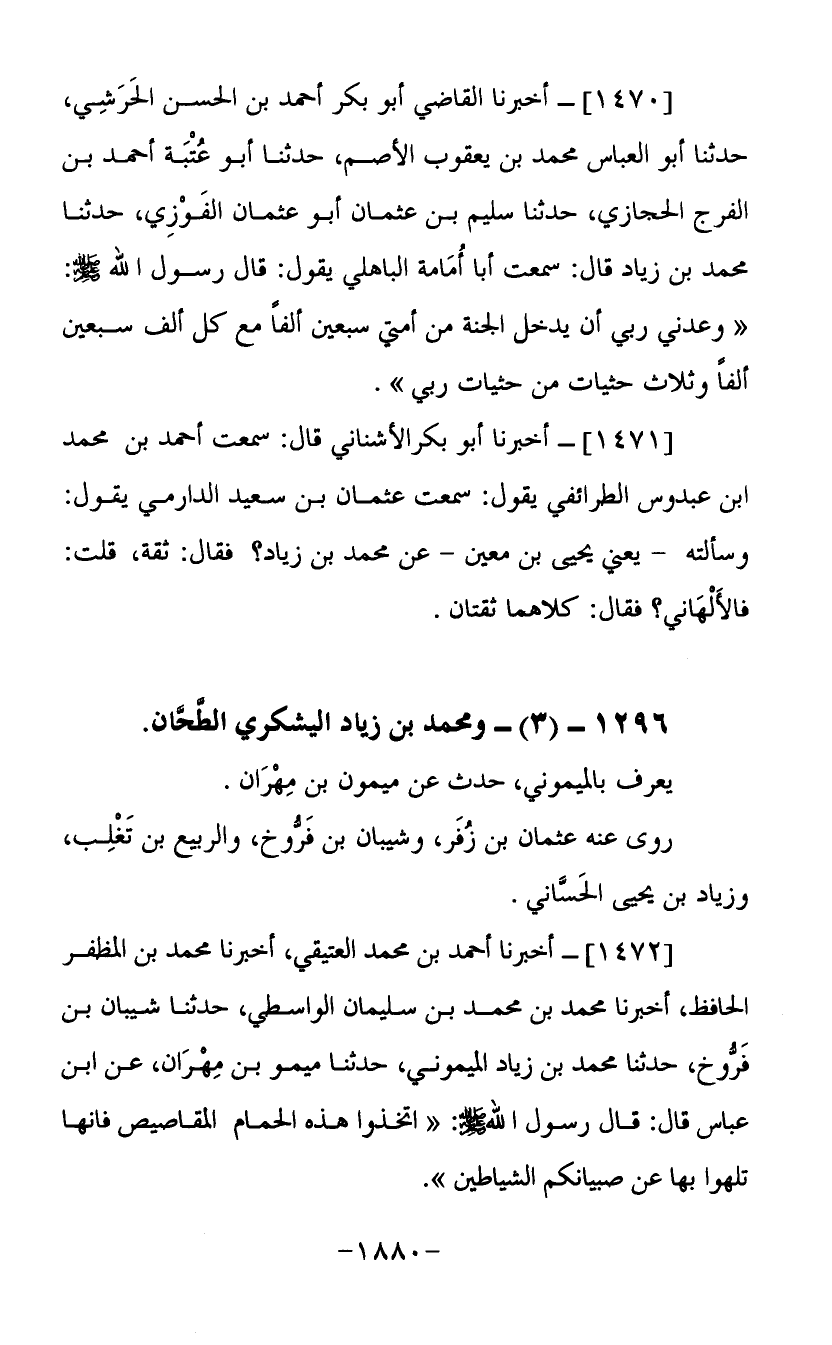 [١٤٧٠] – أخبرنا القاضي أبو بكر أحمد بن الحسن الحَرَشِي،
حدثنا أبو العباس محمد بن يعقوب الأصم، حدثنا أبو عُتْبَة أحمد بن
الفرج الحجازي، حدثنا سليم بن عثمان أبو عثمان الفَوْزِي، حدثنا
محمد بن زياد قال: سمعت أبا أُمَامة الباهلي يقول: قال رسول الله ﷺ:
« وعدني ربي أن يدخل الجنة من أمتي سبعين ألفاً مع كل ألف سبعين
ألفاً وثلاث حثيات من حثيات ربي » .
[١٤٧١] – أخبرنا أبو بكرالأشناني قال: سمعت أحمد بن محمد
ابن عبدوس الطرائفي يقول: سمعت عثمان بن سعيد الدارمي يقول:
وسألته – يعني يحيى بن معين – عن محمد بن زياد؟ فقال: ثقة، قلت:
فالأَلْهَاني؟ فقال: كلاهما ثقتان .
١٢٩٦ – (٣) – ومحمد بن زياد اليشكري الطَّحَّان.
يعرف بالميموني، حدث عن ميمون بن مِهْرَان .
روى عنه عثمان بن زُفَر، وشيبان بن فَرُّوخ، والربيع بن تَغْلِب،
وزياد بن يحيى الحَسَّاني .
[١٤٧٢] – أخبرنا أحمد بن محمد العتيقي، أخبرنا محمد بن المظفر
الحافظ، أخبرنا محمد بن محمد بن سليمان الواسطي، حدثنا شيبان بن
فَرُّوخ، حدثنا محمد بن زياد الميموني، حدثنا ميمو بن مِهْرَان، عن ابن
عباس قال: قال رسول اللهﷺ: « اتخذوا هذه الحمام المقاصيص فانها
تلهوا بها عن صبيانكم الشياطين ».
–١٨٨٠–